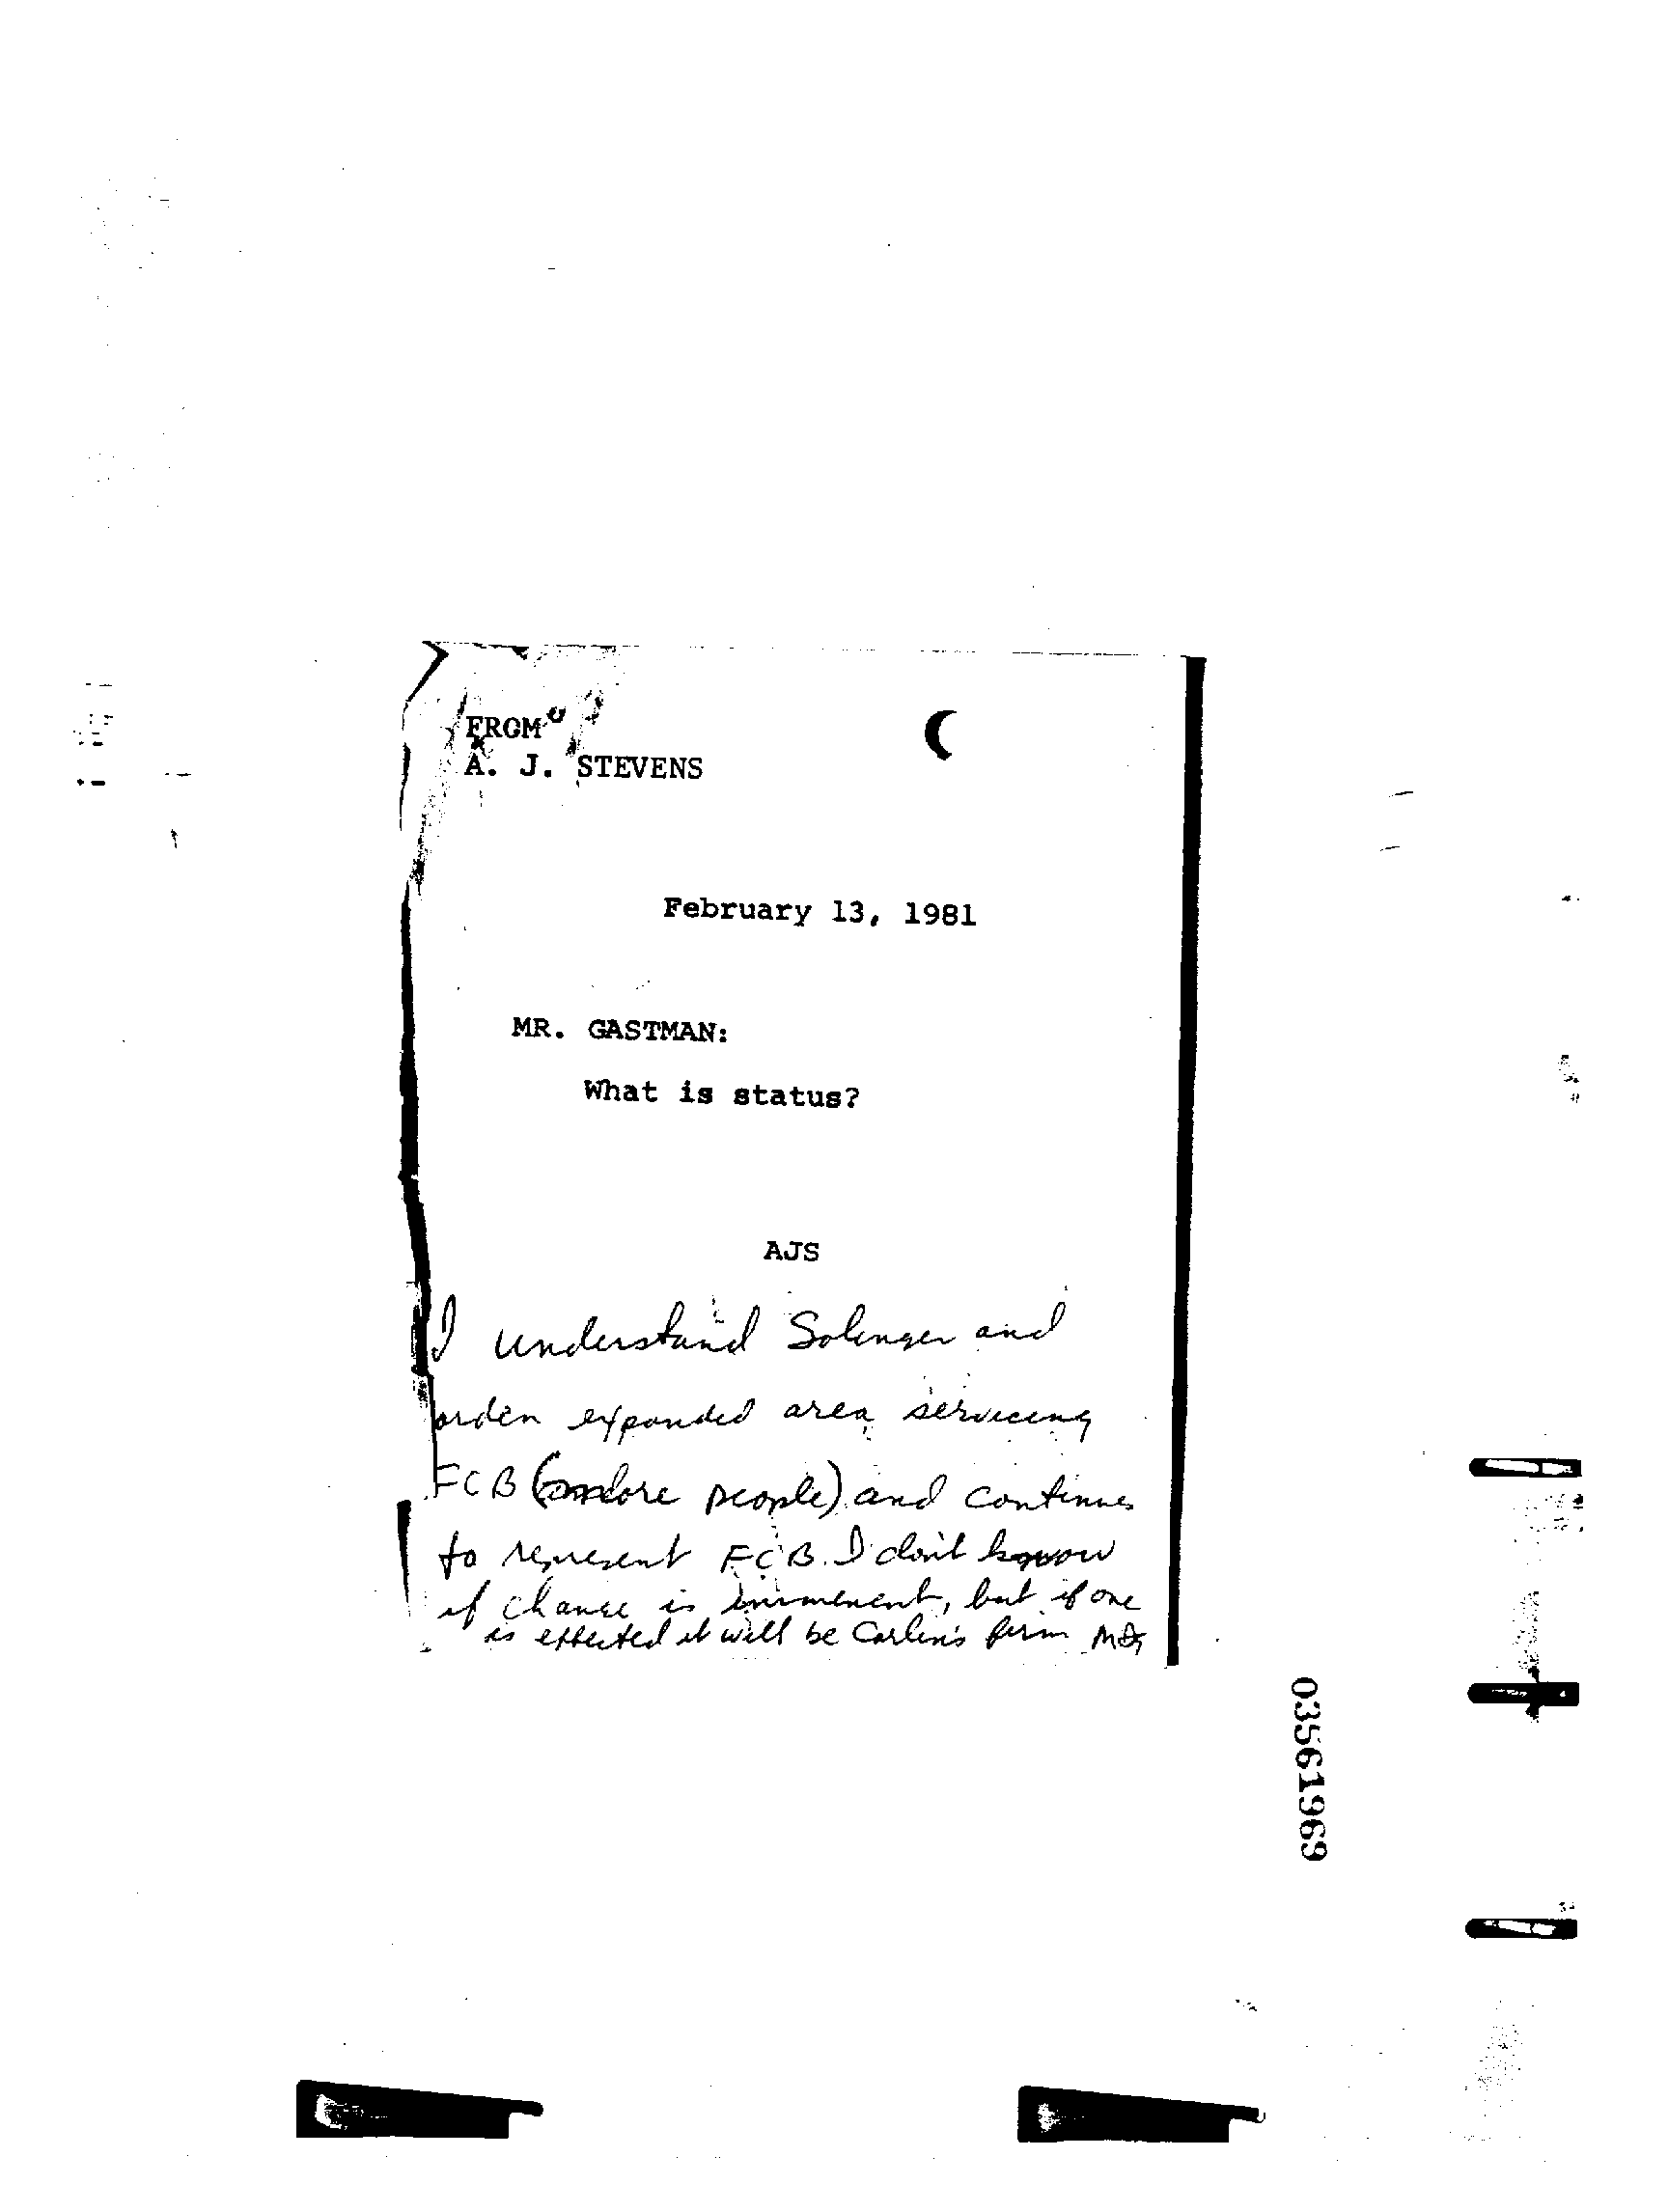 FROM
A. J. STEVENS
February 13, 1981
MR. GASTMAN:
What is status?
AJS
I understand Solinger and
orden expanded area servicing
FCB (more people) and continues
to represent FCB. I don't know
if change is imminent, but if one
is effected it will be Carlin's firm
03561969